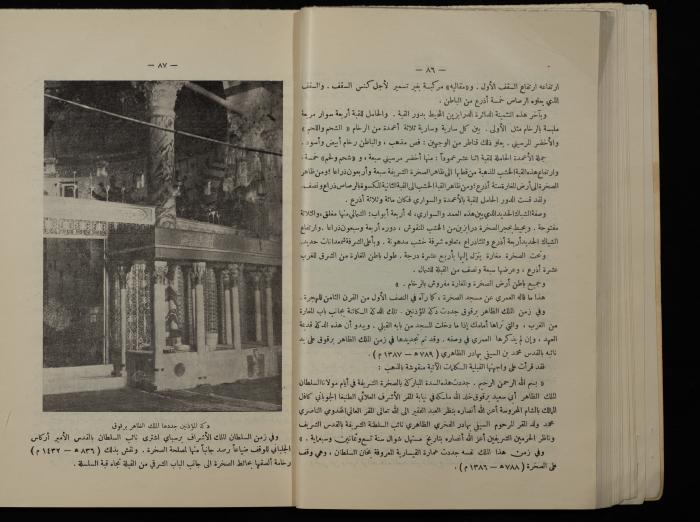 — ٨٦ —
ارتفاعه ارتفاع السقف الأول . و «مقالبه» مركبة بغير تسمير لأجل كنس السقف . والسقف
الذي يعلوه الرصاص خمسة أذرع من الباطن .
وبآخر هذه التثمينة الدائرة الدرابزين المحيط بدور القبة . والحامل للقبة أربعة سوار مربعة
ملبسة بالرخام مثل الأولى . بين كل سارية وسارية ثلاثة أعمدة من الرخام « الشحم واللحم »
والأخضر المرسيني . يعلو ذلك قناطر من الوجهين : فص مذهب ، والباطن رخام أبيض وأسود .
جملة الأعمدة الحاملة للقبة اثنا عشر عموداً : منها أخضر مرسيني سبعة ، و « شحم ولحم » خمسة .
وارتفاع هذه القبة الخشب المذهبة من قطبها الى ظاهر الصخرة الشريفة سبعة وأربعون ذراعا ؛ ومن ظاهر
الصخرة الى أرض المغارة ستة أذرع ؛ ومن ظاهر القبة الخشب الى القبة الثانية المكسوة بالرصاص ذراع ونصف .
ولقد قست الدور الحامل للقبة بالأعمدة والسواري فكان مائة وثلاثة أذرع .
وصفة الشباك الحديد الذي بين هذه العمد والسواري ، له أربعة أبواب : الشمالي منها مغلق ، والثلاثة
مفتوحة . ويحيط بحجر الصخرة درابزين من الخشب المنقوش ، دوره أربعة وسبعون ذراعا . وارتفاع
الشباك الحديد أربعة أذرع وثلثا ذراع ، تعلوه شرفة خشب مدهونة . وبأعلى الشرفة شمعدانات حديد .
وتحت الصخرة مغارة ينزل إليها بأربع عشرة درجة . طول باطن المغارة من الشرق للغرب
عشرة أذرع ، وعرضها سبعة ونصف من القبلة للشمال .
وجميع باطن أرض الصخرة والمغارة مفروش بالرخام . »
هذا ما قاله العمري عن مسجد الصخرة ، كما رآه في النصف الأول من القرن الثامن للهجرة .
وفي زمن الملك الظاهر برقوق جددت دكة المؤذنين . تلك الدكة الكائنة بجانب باب المغارة
من الغرب ، والتي تراها أمامك إذا ما دخلت المسجد من بابه القبلي . ويبدو أن هذه الدكة قديمة
العهد ، وإن لم يذكرها العمري في وصفه . وقد تم تجديدها في زمن الملك الظاهر برقوق على يد
نائبه بالقدس محمد بن السيفي بهادر الظاهري ( ٧٨٩ ه — ١٣٨٧ م ) .
فقد قرأت على واجهتها القبلية الكلمات الآتية منقوشة بالذهب :
« بسم الله الرحمن الرحيم . جددت هذه السدة المباركة بالصخرة الشريفة في أيام مولانا السلطان
الملك الظاهر أبي سعيد برقوق خلد الله ملكه في نيابة المقر الأشرف العلائي الطنبغا الجوباني كافل
الممالك بالشام المحروسة أعز الله أنصاره بنظر العبد الفقير الى الله تعالى المقر العالي المخدومي الناصري
محمد ولد المقر المرحوم السيفي بهادر الفخري الظاهري نائب السلطنة الشريفة بالقدس الشريف
وناظر الحرمين الشريفين أعز الله أنصاره بتاريخ مستهل شوال سنة تسع وثمانين وسبعماية . »
وفي زمن هذا الملك نفسه جددت عمارة القيسارية المعروفة بخان السلطان ، وهي وقف
على الصخرة ( ٧٨٨ ه — ١٣٨٦ م ) .
— ٨٧ —
دكة المؤذنين جددها الملك الظاهر برقوق
وفي زمن السلطان الملك الأشراف برسباي اشترى نائب السلطان بالقدس الأمير أركاس
الجلباني للوقف ضياعاً رصد جانباً منها لمصلحة الصخرة . ونقش بذلك ( ٨٣٦ ه — ١٤٣٢ م )
رخامة ألصقها بحائط الصخرة الى جانب الباب الشرقي من القبلة تجاه قبة السلسلة .